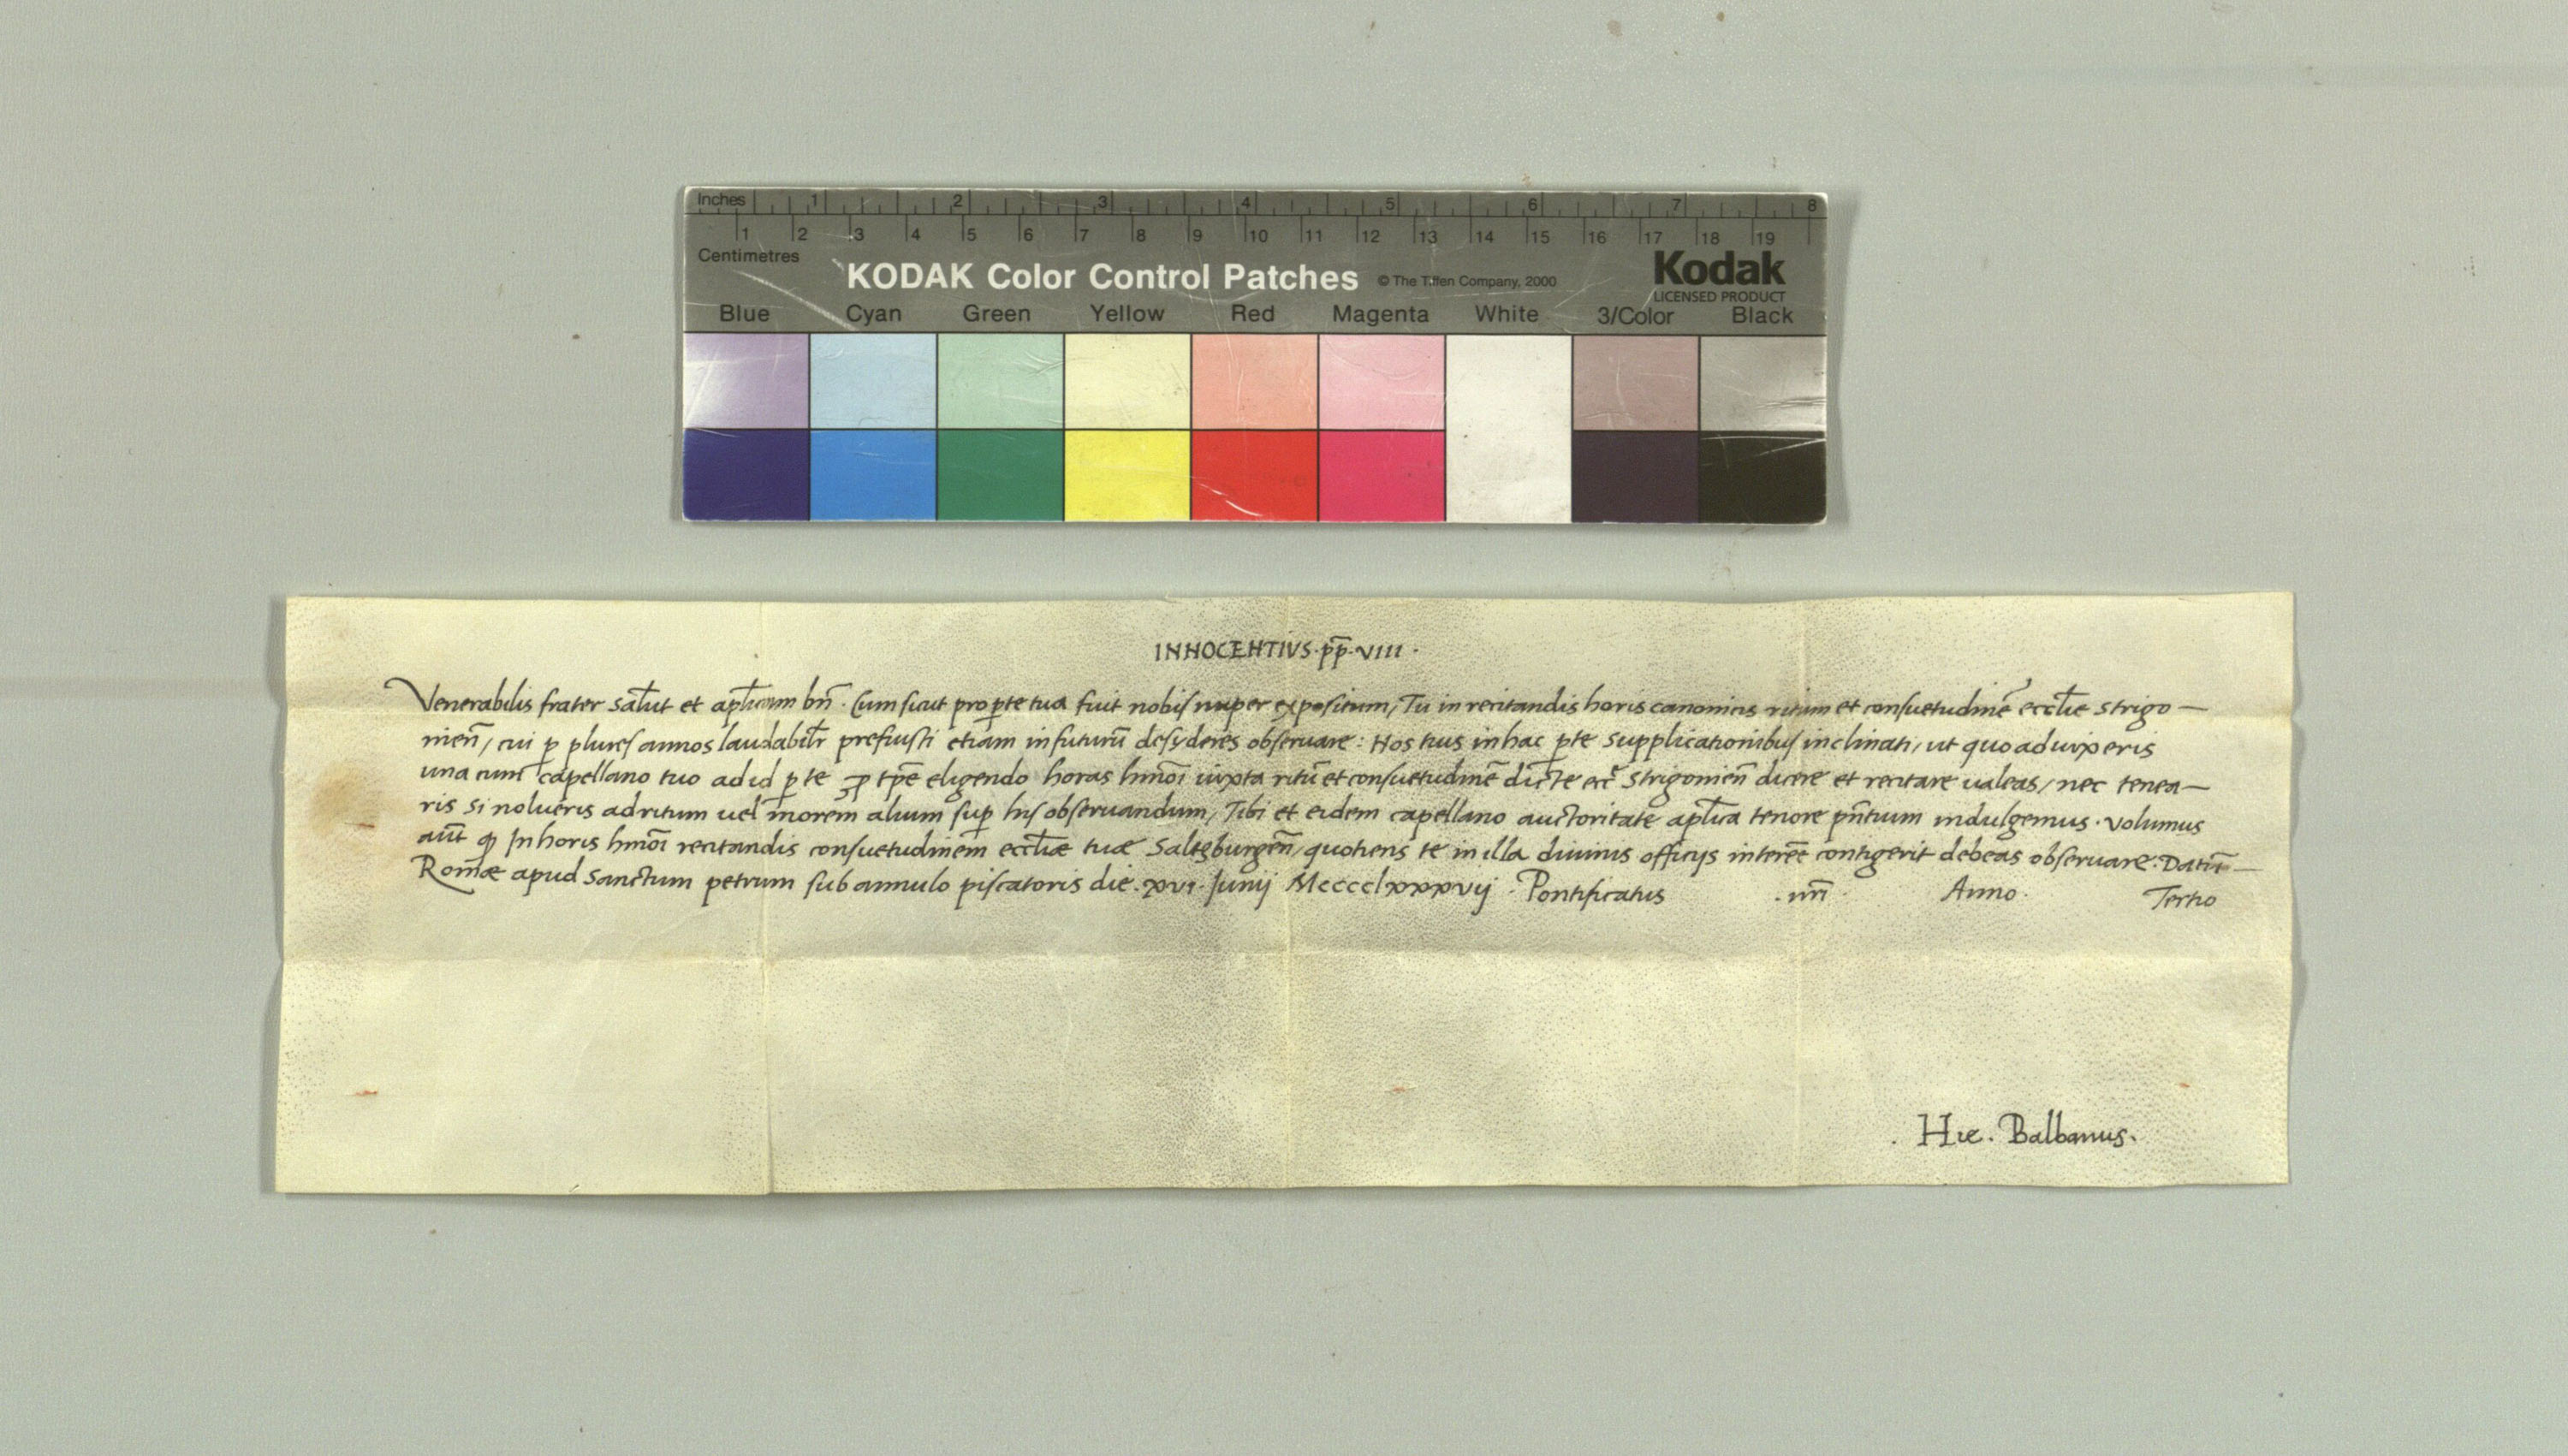 Inches 1 2 3 4 5 6 7 8
1 2 3 4 5 6 7 8 9 10 11 12 13 14 15 16 17 18 19
Centimetres
KODAK Color Control Patches © The Tiffen Company, 2000 Kodak
LICENSED PRODUCT
Blue Cyan Green Yellow Red Magenta White 3/Color Black
INNOCENTIVS·pp̄·VIII·
Venerabilis frater sal̄ut et apl̄icam bn̄. Cum sicut pro p̱te tua fuit nobis nuper expositum, Tu in recitandis horis canonicis ritum et consuetudinē eccl̄ie Strigo—
nien̄, cui p̱ plures annos laudabilr̄ prefuisti etiam in futurū desyderes obseruare: Nos tuis in hac p̱te supplicationibus inclinati, ut quoad uixeris
una cum capellano tuo ad id p̱ te p̱ tpē eligendo horas hmōi iuxta ritū et consuetudinē dict̄e ecc̄ Strigonien̄ dicere et recitare ualeas, nec tenea—
ris si nolueris ad ritum uel morem alium sup̱ his obseruandum, Tibi et eidem capellano auctoritate apl̄ica tenore pn̄tium indulgemus. Volumus
aūt ꝙ In horis hmōi recitandis consuetudinem eccl̄iæ tuæ Saltzburgen̄, quotiens te in illa diuinis officijs intereē contigerit debeas obseruare. Datū—
Romæ apud Sanctum petrum sub annulo piscatoris die. xvi. Junij Mcccclxxxvij. Pontificatus .nr̄i. Anno. Tertio
. Hie. Balbanus.